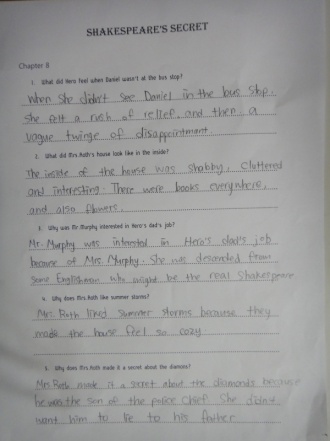 SHAKESPEARE'S SECRET
Chapter 8
1. What did Hero feel when Daniel wasn't at the bus stop?
When she didn't see Daniel in the bus stop,
she felt a rush of relief, and then a
vague twinge of disappointment.
2. What did Mrs.Roth's house look like in the inside?
The inside of the house was shabby, cluttered
and interesting. There were books everywhere,
and also flowers.
3. Why was Mr.Murphy interested in Hero's dad's job?
Mr. Murphy was interested in Hero's dad's job
because of Mrs. Murphy. She was descended from
some Englishman who might be the real Shakespeare
4. Why does Mrs.Roth like summer storms?
Mrs. Roth liked summer storms because they
made the house feel so cozy.
5. Why did Mrs.Roth made it a secret about the diamons?
Mrs.Roth made it a secret about the diamonds because
he was the son of the police chief. She didn't
want him to lie to his father